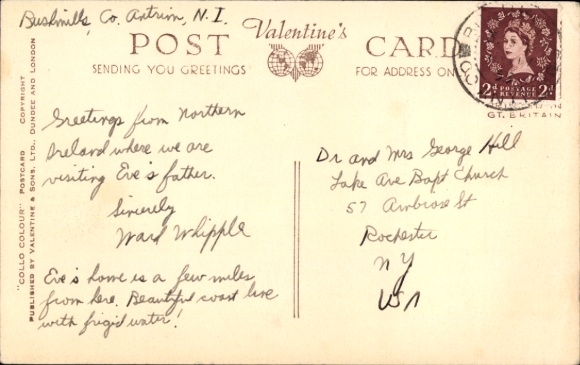 Bushmills, Co. Antrim, N.I.
Valentine's
POST CARD
SENDING YOU GREETINGS
FOR ADDRESS ON
2D POSTAGE REVENUE 2D
GT. BRITAIN
"COLLO COLOUR" POSTCARD COPYRIGHT
PUBLISHED BY VALENTINE & SONS, LTD., DUNDEE AND LONDON
Greetings from Northern
Ireland where we are
visiting Eve's father.
Sincerely
Ward Whipple
Eve's home is a few miles
from here. Beautiful coast line
with frigid water!
Dr and Mrs George Hill
Lake Ave Bapt Church
57 Ambrose St
Rochester
NY
USA